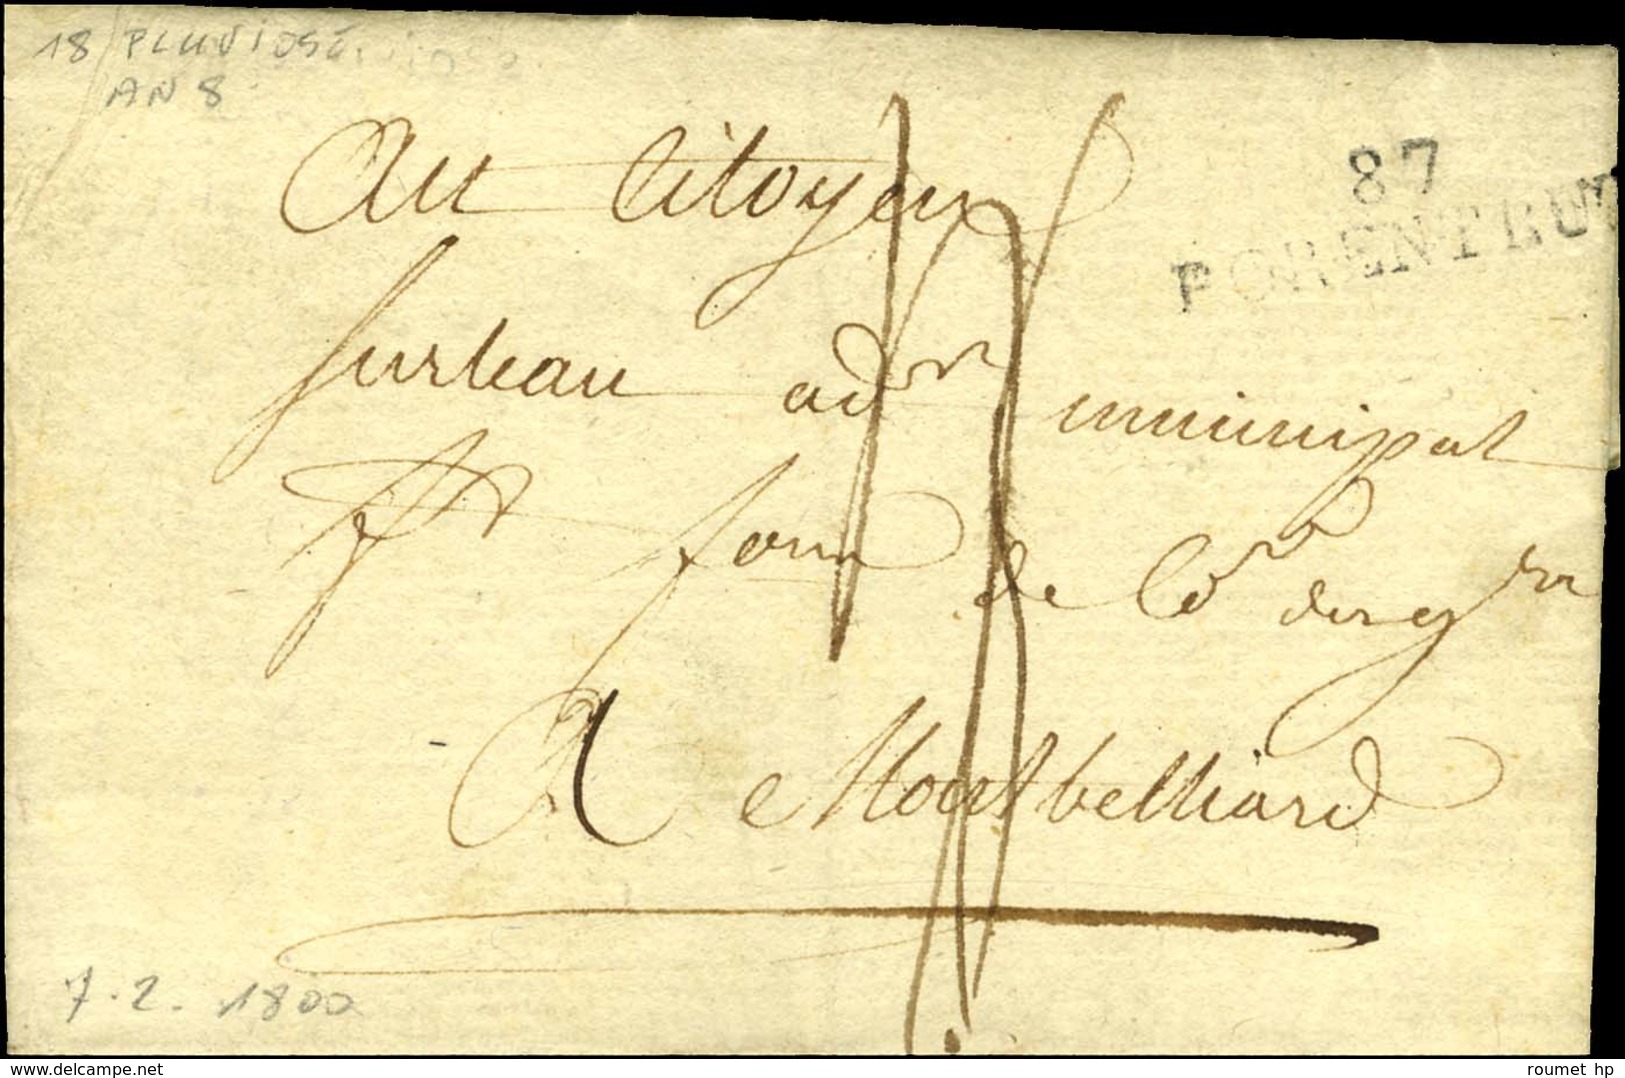 18 PLUVIOSE
AN 8
87
PORENTRUY
Au Citoyen
Surleau adr municipal
de
A Montbelliard
7.2.1800
delcampe.net
roumet hp